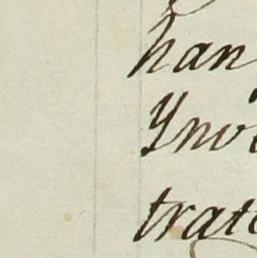 han
Ynvi
trato